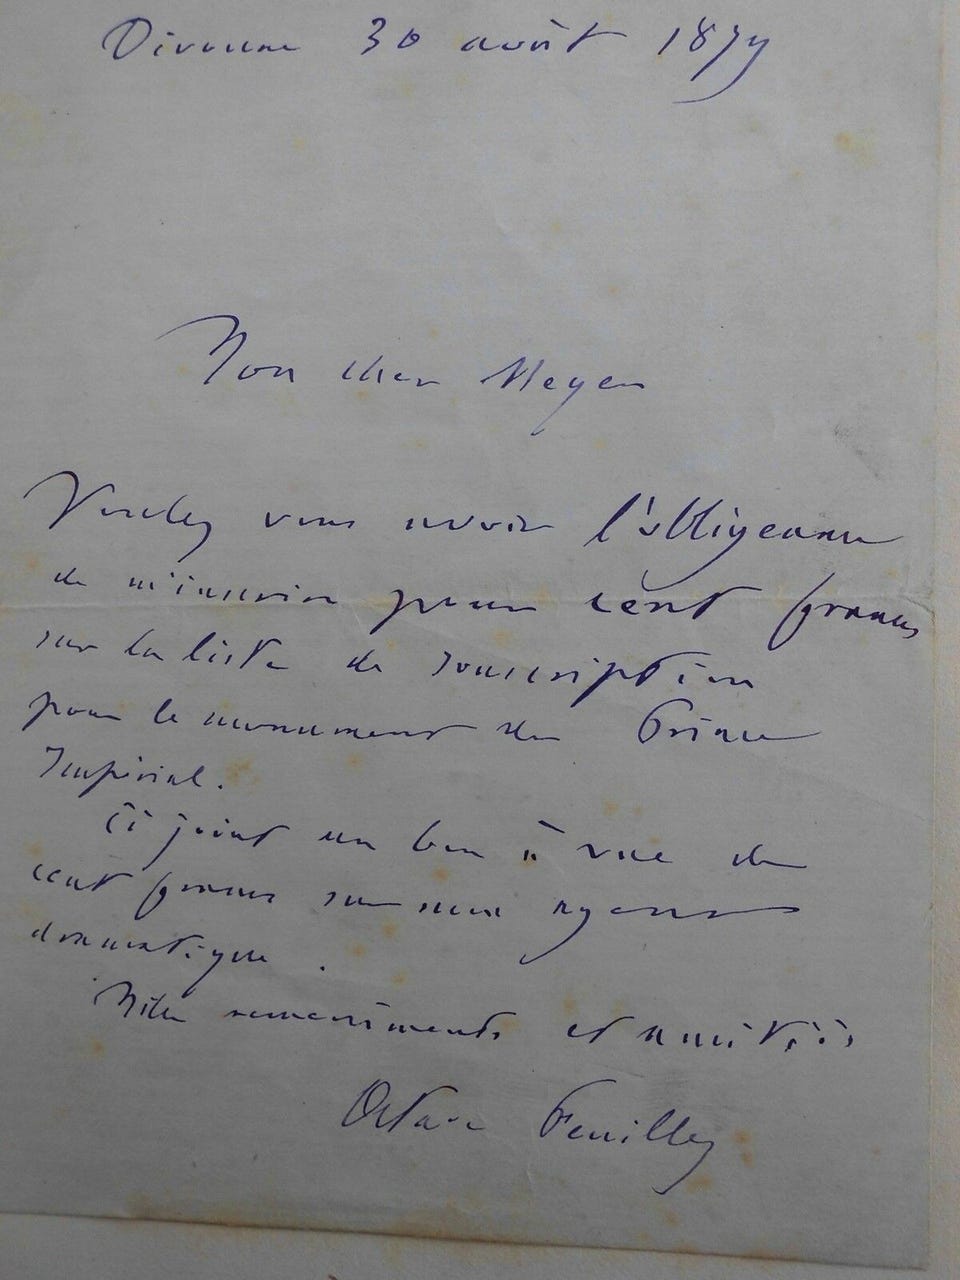 Divonne 30 août 1879
Mon cher Meyer
Voulez vous avoir l'obligeance
de m'inscrire pour cent francs
sur la liste de souscription
pour le monument du Prince
Impérial.
Ci joint un bon à vue de
cent francs sur mon agent
dramatique.
Mille remerciments et amitiés
Octave Feuillet